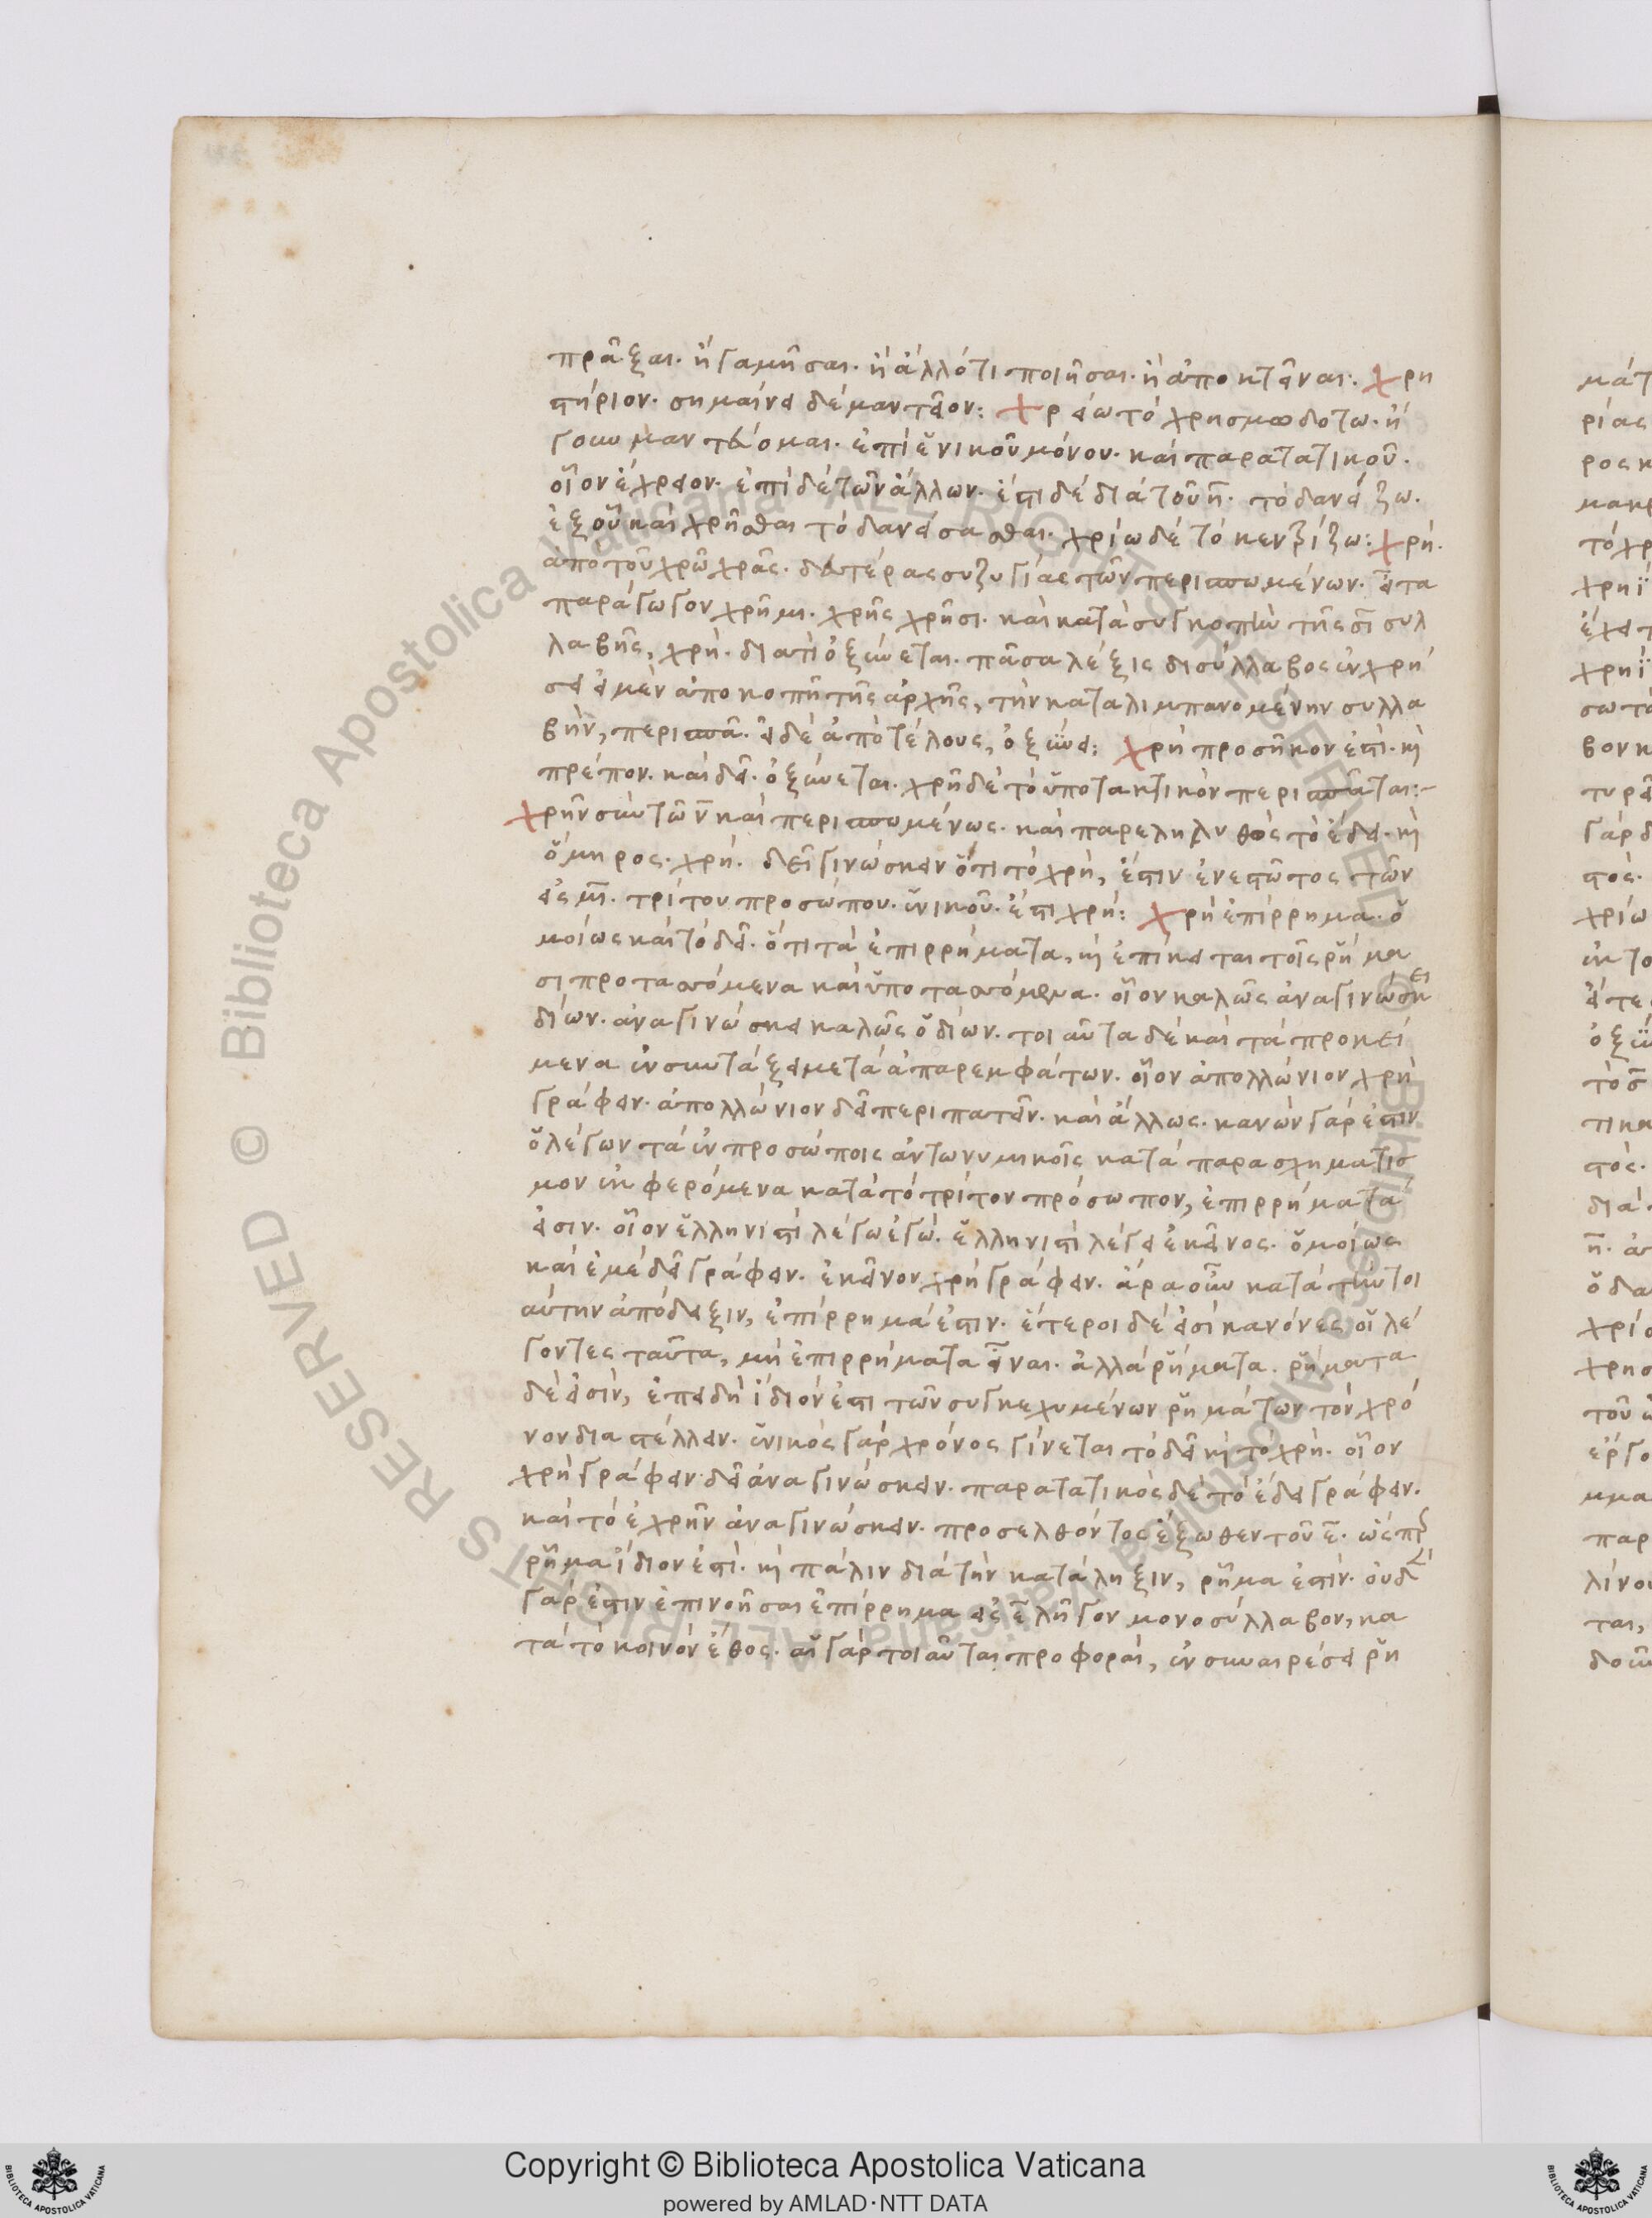 πρᾶξαι. ἢ γαμῆσαι. ἢ ἄλλό τι ποιῆσαι. ἢ ἀποκτεῖναι. χρη
στήριον. σημαίνει δὲ μαντεῖον: χρείω τὸ χρησμωδοτω. ἤ
γουν μαντεύομαι. ἐπὶ ἑνικοῦ μόνου. καὶ παρατατικοῦ.
οἷον ἔχρεον. ἐπὶ δὲ τῶν ἄλλων. ἔστι δὲ διὰ τοῦ η. τὸ δανείζω.
ἐξ οὗ καὶ χρῆσθαι τὸ δανείσασθαι. χρίω δὲ τὸ κεντρίζω: χρή.
ἀπὸ τοῦ χρῶ χρᾷς. δευτέρας συζυγίας τῶν περισπωμένων. εἶτα
παράγωγον χρῆμι. χρῆς χρῆσι. καὶ κατὰ συγκοπὴν τῆς σι συλ
λαβῆς, χρή. διατί ὀξύνεται. πᾶσα λέξις δισύλλαβος ἐν χρή
σει εἰ μὲν ἀποκοπῇ τῆς ἀρχῆς, τὴν καταλιμπανομένην συλλα
βήν, περισπᾶ. εἰ δὲ ἀπὸ τέλους, ὀξύνει: χρὴ προσῆκον ἐστί. καὶ
πρέπον. καὶ δεῖ. ὀξύνεται. χρῇ δὲ τὸ ὑποτακτικὸν περισπᾶται:-
χρῆν σὺν τῶ ν καὶ περισπωμένως. καὶ παρεληλυθὸς τὸ ἔδει. καὶ
ὅμηρος. χρή. δεῖ γινώσκειν ὅτι τὸ χρή, ἔστιν ἐνεστῶτος τῶν
εἰς μι. τρίτου προσώπου. ἑνικοῦ. ἔστι χρή: χρὴ ἐπίρρημα. ὁ
μοίως καὶ τὸ δεῖ. ὅτι τὰ ἐπιρρήματα, καὶ ἐπίκειται τοῖς ῥήμα
σι προτασσόμενα καὶ ὑποτασσόμενα. οἷον καλῶς ἀναγινώσκει
δίων. ἀναγινώσκει καλῶς ὁ δίων. τοιαῦτα δὲ καὶ τὰ προκεί
μενα ἐν συντάξει μετὰ ἀπαρεμφάτων. οἷον ἀπολλώνιον χρὴ
γράφειν. ἀπολλώνιον δεῖ περιπατεῖν. καὶ ἄλλως. κανὼν γάρ ἐστιν
ὁ λέγων τὰ ἐν προσώποις ἀντωνυμικοῖς κατὰ παρασχηματισ
μον ἐκφερόμενα κατὰ τὸ τρίτον πρόσωπον, ἐπιρρήματά
εἰσιν. οἷον ἑλληνιστὶ λέγω ἐγώ. ἑλληνιστὶ λέγει ἐκεῖνος. ὁμοίως
καὶ ἐμὲ δεῖ γράφειν. ἐκεῖνον χρὴ γράφειν. ἄρα οὖν κατὰ τὴν τοι
αύτην ἀπόδειξιν, ἐπίρρημά ἐστιν. ἕτεροι δέ εἰσὶ κανόνες οἱ λέ
γοντες ταῦτα, μὴ ἐπιρρήματα εἶναι. ἀλλὰ ῥήματα. ῥήματα
δέ εἰσιν, ἐπειδὴ ἴδιόν ἐστι τῶν συγκεχυμένων ῥημάτων τὸν χρό
νον διαστέλλειν. ἑνικὸς γὰρ χρόνος γίνεται τὸ δεῖ καὶ τὸ χρή. οἷον
χρὴ γράφειν. δεῖ ἀναγινώσκειν. παρατατικὸς δὲ τὸ ἔδει γράφειν.
καὶ τὸ ἐχρῆν ἀναγινώσκειν. προσελθόντος ἔξωθεν τοῦ ε.
ῥῆμα ἴδιον ἐστί. καὶ πάλιν διὰ τὴν κατάληξιν, ῥῆμα ἐστίν. οὐδὲ
γὰρ ἔστιν ἐπινοῆσαι ἐπίρρημα εἰς ει λῆγον μονοσύλλαβον, κα
τὰ τὸ κοινὸν ἔθος. αἱ γὰρ τοιαῦται προφοραὶ, ἐν συναιρέσει ῥη